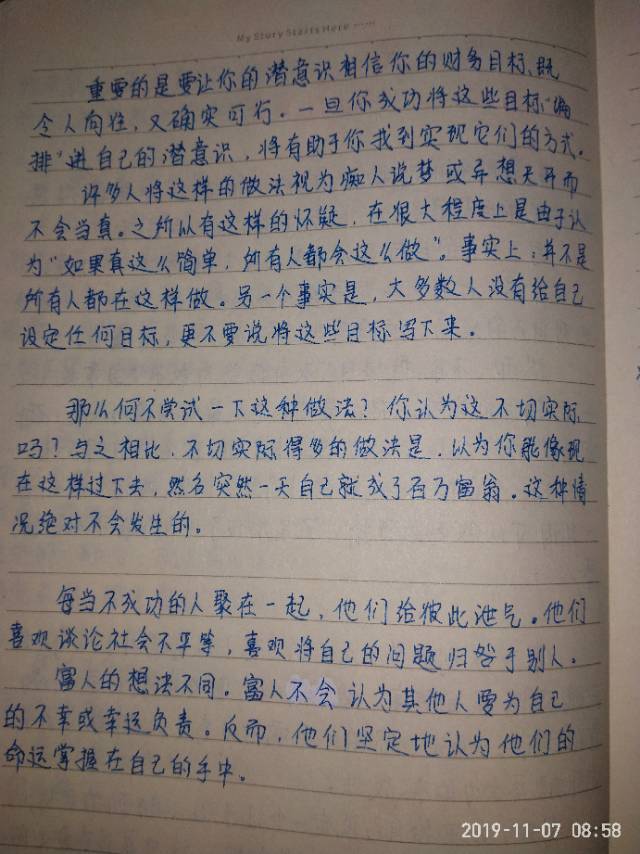 My Story Starts Here
重要的是要让你的潜意识相信你的财务目标、既
令人向往,又确实可行。一旦你成功将这些目标“编
排”进自己的潜意识,将有助于你找到实现它们的方式。
许多人将这样的做法视为痴人说梦或异想天开而
不会当真。之所以有这样的怀疑,在很大程度上是由于认
为“如果真这么简单,所有人都会这么做”。事实上,并不是
所有人都在这样做。另一个事实是,大多数人没有给自己
设定任何目标,更不要说将这些目标写下来。
那么何不尝试一下这种做法?你认为这不切实际
吗?与之相比,不切实际得多的做法是,以为你能像现
在这样过下去,然后突然一天自己就成了百万富翁。这种情
况绝对不会发生的。
每当不成功的人聚在一起,他们给彼此泄气。他们
喜欢谈论社会不平等,喜欢将自己的问题归咎于别人。
富人的想法不同。富人不会认为其他人要为自己
的不幸或幸运负责。反而,他们坚定地认为他们的
命运掌握在自己的手中。
2019-11-07 08:58